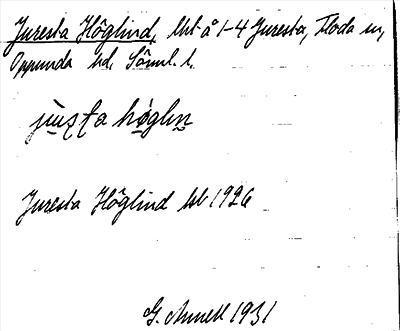 Juresta Höglind, lht å 1-4 Juresta, Floda sn,
Oppunda hd, Söml. l.
Juresta Höglind hb 1926
G. Annell 1931